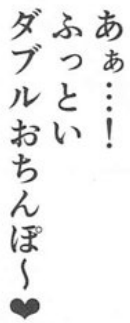 あぁ…!
ふっとい
ダブルおちんぽ〜♥